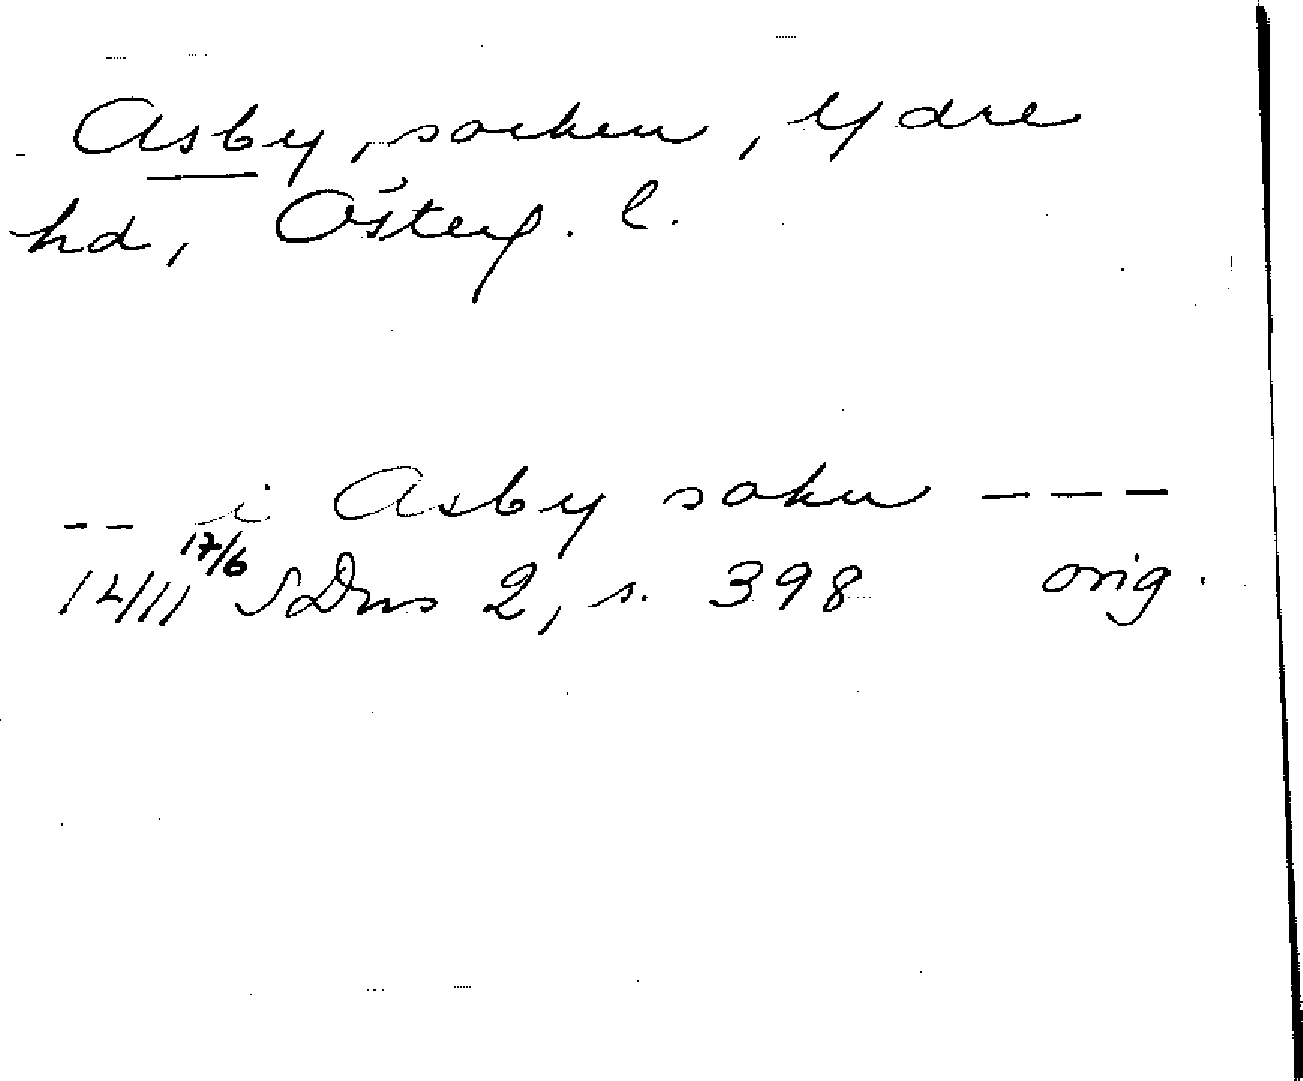 Asby, socken, Ydre
hd, Österg. l.
-- i Asby sokn ---
17/6
1411 SDns 2, s. 398 orig.